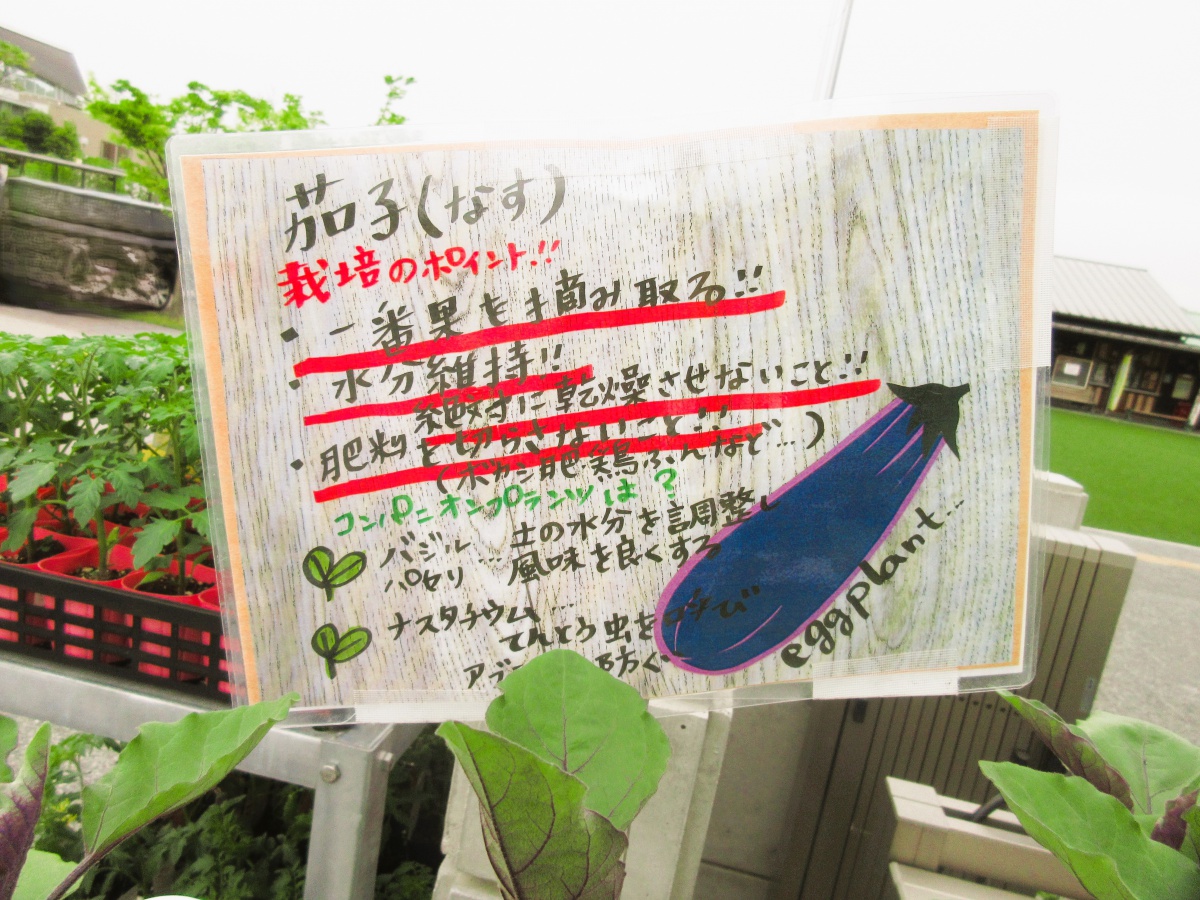 茄子(なす)
栽培のポイント!!
・一番果を摘み取る!!
・水分維持!!
極度に乾燥させないこと!!
・肥料を切らさないこと!!
(ボカシ肥 鶏ふんなど…)
コンパニオンプランツは?
バジル
パセリ … 土の水分を調整し
風味を良くする
ナスタチウム…
てんとう虫をよび
防ぐ…
eggplant…